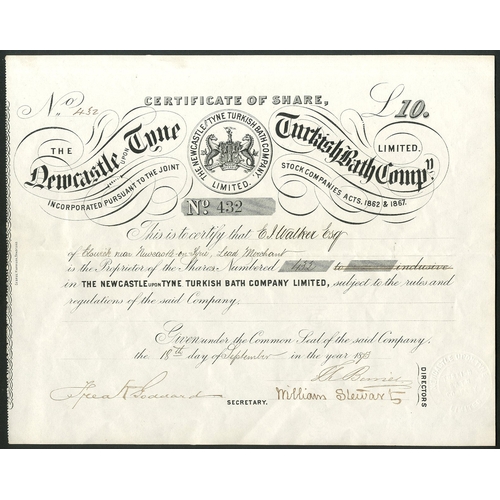 CERTIFICATE OF SHARE,
No. 432
£10.
THE Newcastle UPON Tyne Turkish Bath Compy. LIMITED.
THE NEWCASTLE UPON TYNE TURKISH BATH COMPANY, LIMITED.
INCORPORATED PURSUANT TO THE JOINT STOCK COMPANIES ACTS, 1862 & 1867.
No. 432
This is to certify that E J Walker Esq
of Elswick near Newcastle on Tyne, Lead Merchant
is the Proprietor of the Shares Numbered 432 to inclusive
in THE NEWCASTLE UPON TYNE TURKISH BATH COMPANY LIMITED, subject to the rules and
regulations of the said Company.
Given under the Common Seal of the said Company,
the 18th day of September in the year 18
William Stewart
DIRECTORS
SECRETARY.